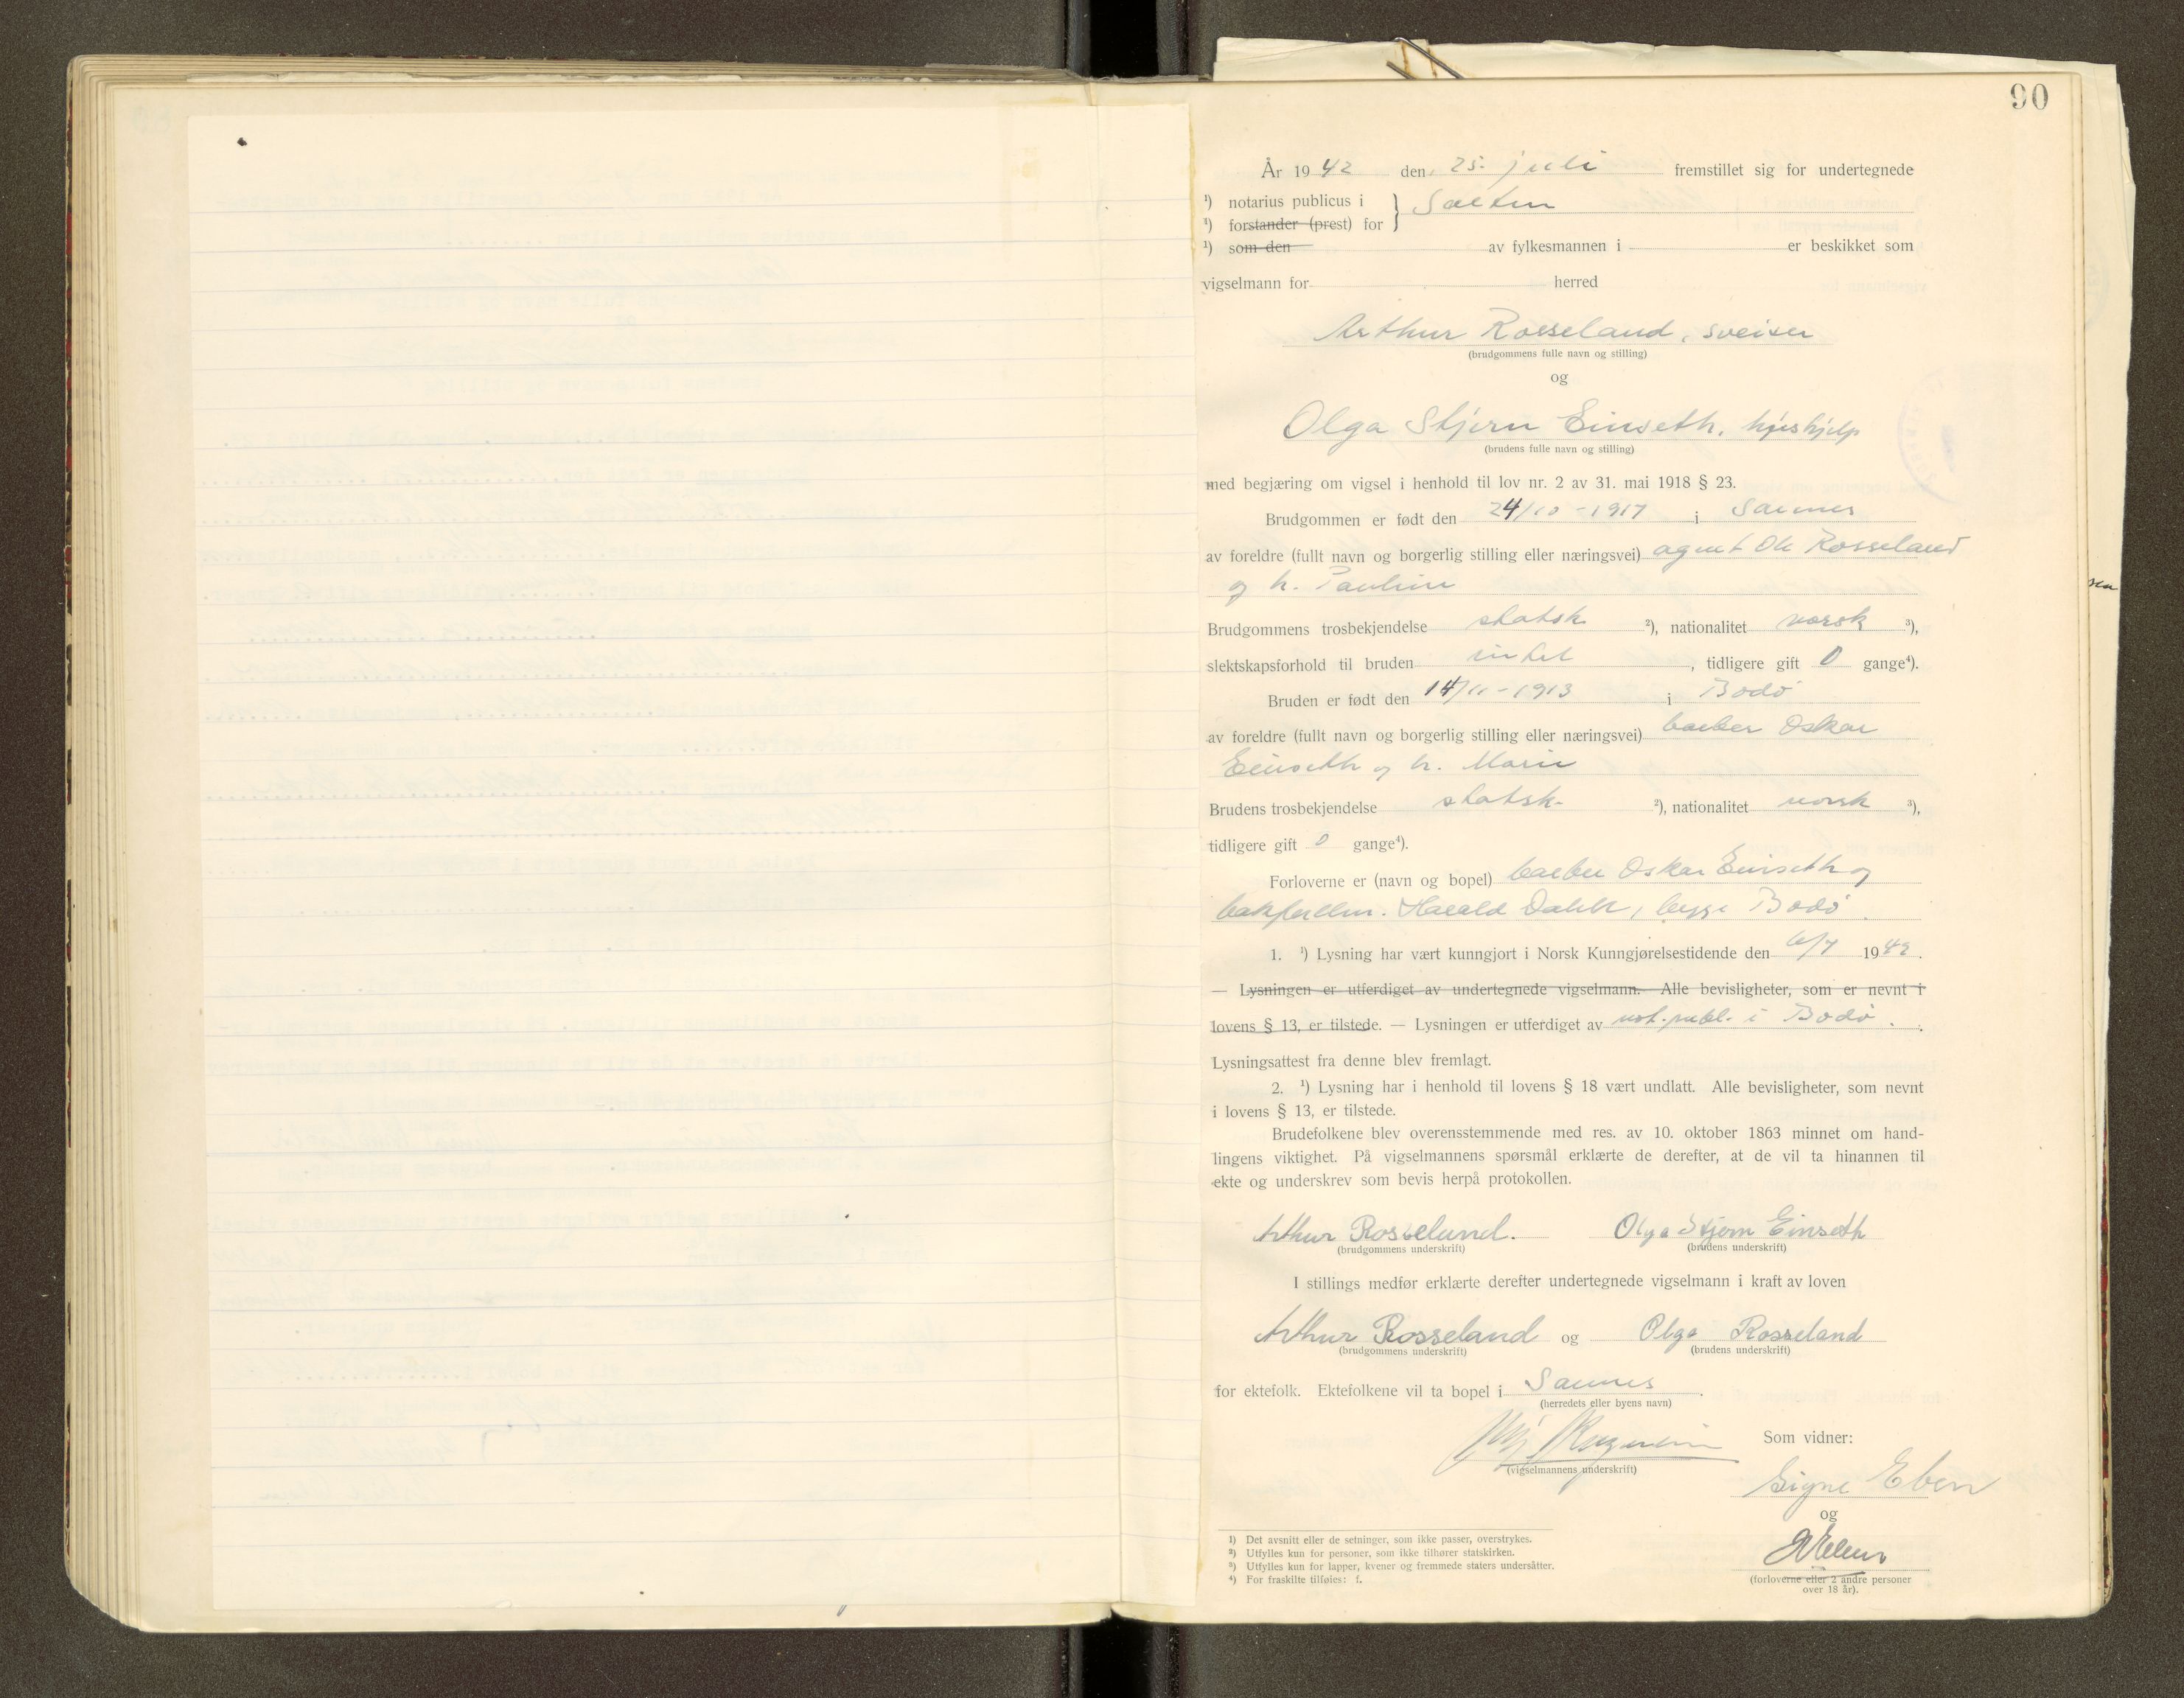 90
År 1942 den 25. juli fremstillet sig for undertegnede
1) notarius publicus i } Salten
1) forstander (prest) for
1) som den av fylkesmannen i er beskikket som
vigselmann for herred
Arthur Rosseland, sveiser
(brudgommens fulle navn og stilling)
og
Olga Stjern Einseth, hushjelp
(brudens fulle navn og stilling)
med begjæring om vigsel i henhold til lov nr. 2 av 31. mai 1918 § 23.
Brudgommen er født den 24/10-1917 i Saunes
av foreldre (fullt navn og borgerlig stilling eller næringsvei) agent Ole Rosseland
og h. Pauline
Brudgommens trosbekjendelse statsk. 2), nationalitet norsk 3),
slektskapsforhold til bruden intet, tidligere gift 0 gange4).
Bruden er født den 14/11-1913 i Bodø
av foreldre (fullt navn og borgerlig stilling eller næringsvei) barber Oskar
Einseth og h. Marie
Brudens trosbekjendelse statsk. 2), nationalitet norsk 3),
tidligere gift 0 gange4).
Forloverne er (navn og bopel) barber Oskar Einseth og
Harald Dahl, begge Bodø.
1. 1) Lysning har vært kunngjort i Norsk Kunngjørelsestidende den 6/7 1942.
— Lysningen er utferdiget av undertegnede vigselmann. Alle bevisligheter, som er nevnt i
lovens § 13, er tilstede. — Lysningen er utferdiget av not. publ. i Bodø.
Lysningsattest fra denne blev fremlagt.
2. 1) Lysning har i henhold til lovens § 18 vært undlatt. Alle bevisligheter, som nevnt
i lovens § 13, er tilstede.
Brudefolkene blev overensstemmende med res. av 10. oktober 1863 minnet om hand-
lingens viktighet. På vigselmannens spørsmål erklærte de derefter, at de vil ta hinannen til
ekte og underskrev som bevis herpå protokollen.
Arthur Rosseland. Olga Stjern Einseth
(brudgommens underskrift) (brudens underskrift)
I stillings medfør erklærte derefter undertegnede vigselmann i kraft av loven
Arthur Rosseland og Olga Rosseland
(brudgommens underskrift) (brudens underskrift)
for ektefolk. Ektefolkene vil ta bopel i Saunes.
(herredets eller byens navn)
Som vidner:
(vigselmannens underskrift)
Signe Eben
og
(forloverne eller 2 andre personer
over 18 år).
1) Det avsnitt eller de setninger, som ikke passer, overstrykes.
2) Utfylles kun for personer, som ikke tilhører statskirken.
3) Utfylles kun for lapper, kvener og fremmede staters undersåtter.
4) For fraskilte tilføies: f.